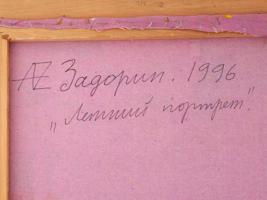 AZ Задорин. 1996
„Летний портрет".